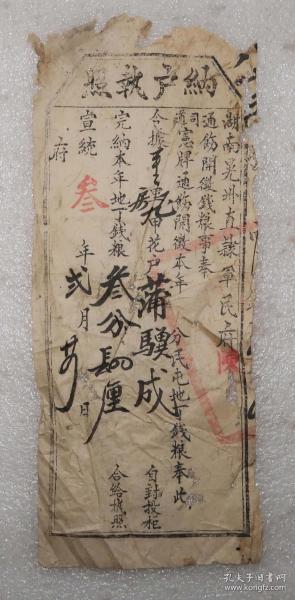 納戶執照
湖南晃州直隸軍民府陳
通飭開徵錢粮事奉
司
道憲牌通飭開徵本年分民屯地丁錢粮奉此
今據甲花戶蒲驥成自封投柜
完納本年地丁錢粮叁分四厘合給執照
宣統叁年弍月廿日
府
孔夫子旧书网